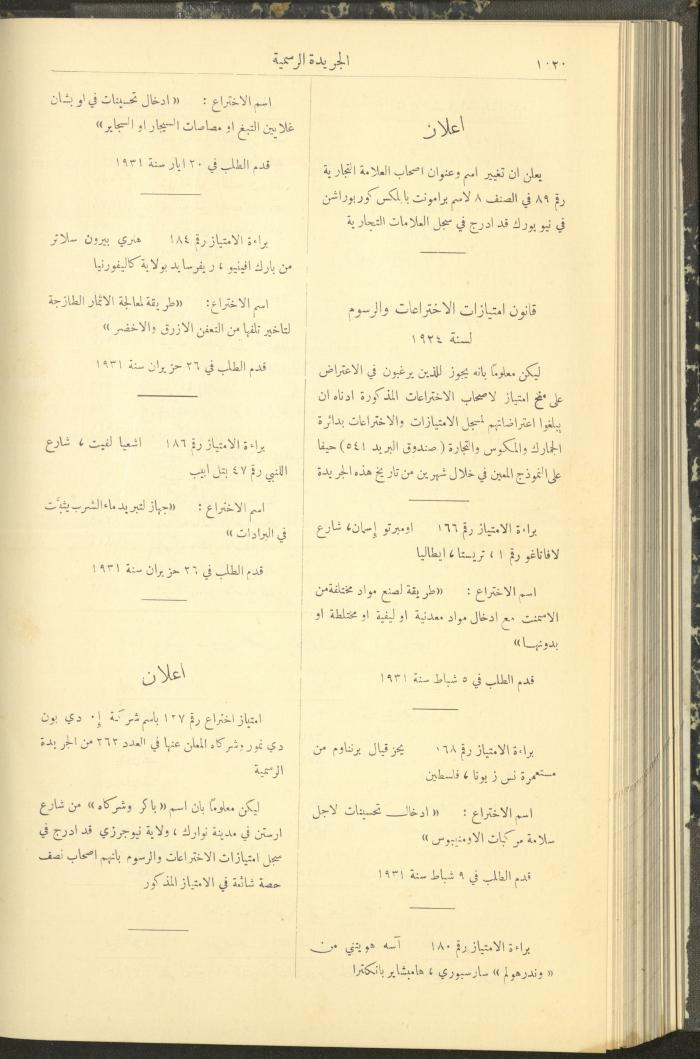 ١٠٢٠
الجريدة الرسمية
اعلان
يعلن ان تغيير اسم وعنوان اصحاب العلامة التجارية
رقم ٨٩ في الصنف ٨ لاسم برامونت بابلكس كوربوراشن
في نيو يورك قد ادرج في سجل العلامات التجارية
قانون امتيازات الاختراعات والرسوم
لسنة ١٩٢٤
ليكن معلومًا بانه يجوز للذين يرغبون في الاعتراض
على منح امتياز لاصحاب الاختراعات المذكورة ادناه ان
يبلغوا اعتراضاتهم لمسجل الامتيازات والاختراعات بدائرة
الجمارك والمكوس والتجارة (صندوق البريد ٥٤١) حيفا
على النموذج المعين في خلال شهرين من تاريخ هذه الجريدة
براءة الامتياز رقم ١٦٦ اومبرتو إسمان، شارع
لافاتاغو رقم ١، تريستا، ايطاليا
اسم الاختراع : «طريقة لصنع مواد مختلفة من
الاسمنت مع ادخال مواد معدنية او ليفية او مختلطة او
بدونها»
قدم الطلب في ٥ شباط سنة ١٩٣١
براءة الامتياز رقم ١٦٨ يحزقيال برنباوم من
مستعمرة نس زيونا، فلسطين
اسم الاختراع : «ادخال تحسينات لاجل
سلامة مركبات الاومنيبوس»
قدم الطلب في ٩ شباط سنة ١٩٣١
براءة الامتياز رقم ١٨٠ آسه هويتني من
«وندرهولم» سارسبوري، هامبشاير بانكلترا
اسم الاختراع : «ادخال تحسينات في او بشان
غلايين التبغ او مصاصات السيجار او السجاير»
قدم الطلب في ٢٠ ايار سنة ١٩٣١
براءة الامتياز رقم ١٨٤ هنري بيرون سلاتر
من بارك افينيو، ريفرسايد بولاية كاليفورنيا
اسم الاختراع: «طريقة لمعالجة الاثمار الطازجة
لتاخير تلفها من التعفن الازرق والاخضر»
قدم الطلب في ٢٦ حزيران سنة ١٩٣١
براءة الامتياز رقم ١٨٦ اشعيا لفيت، شارع
اللنبي رقم ٤٧ بتل ابيب
اسم الاختراع : «جهاز لتبريد ماء الشرب يثبَّت
في البرادات»
قدم الطلب في ٢٦ حزيران سنة ١٩٣١
اعلان
امتياز اختراع رقم ١٢٧ باسم شركة إ. دي بون
دي نمور وشركاه المعلن عنها في العدد ٢٦٢ من الجريدة
الرسمية
ليكن معلومًا بان اسم «باكر وشركاه» من شارع
ارستن في مدينة نوارك، ولاية نيوجرزي قد ادرج في
سجل امتيازات الاختراعات والرسوم بانهم اصحاب نصف
حصة شائعة في الامتياز المذكور